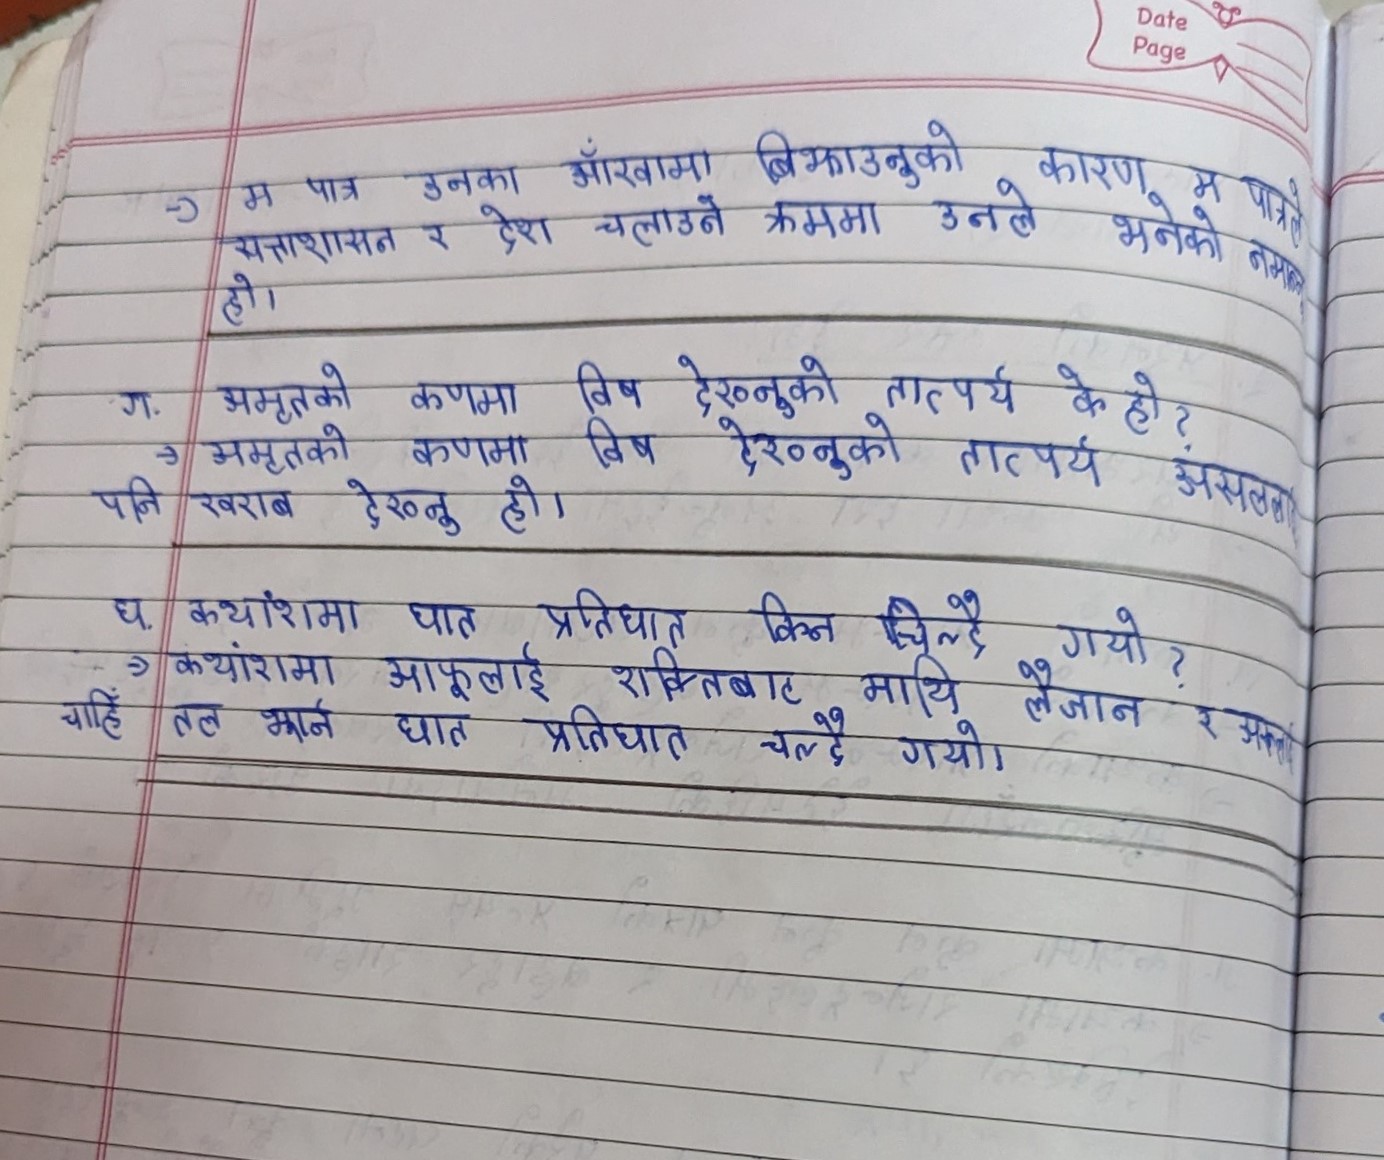 Date
Page
⇒ म पात्र उनका आँखामा बिझाउनुको कारण म पात्रले
सत्ताशासन र देश चलाउने क्रममा उनले भनेको नमान्नु
हो।
ग. अमृतको कणमा विष देख्नुको तात्पर्य के हो?
⇒ अमृतको कणमा विष देख्नुको तात्पर्य असललाई
पनि खराब देख्नु हो।
घ. कथांशमा घात प्रतिघात किन चल्दै गयो?
⇒ कथांशमा आफूलाई शक्तिबाट माथि लैजान र अरूलाई
चाहिँ तल झार्न घात प्रतिघात चल्दै गयो।